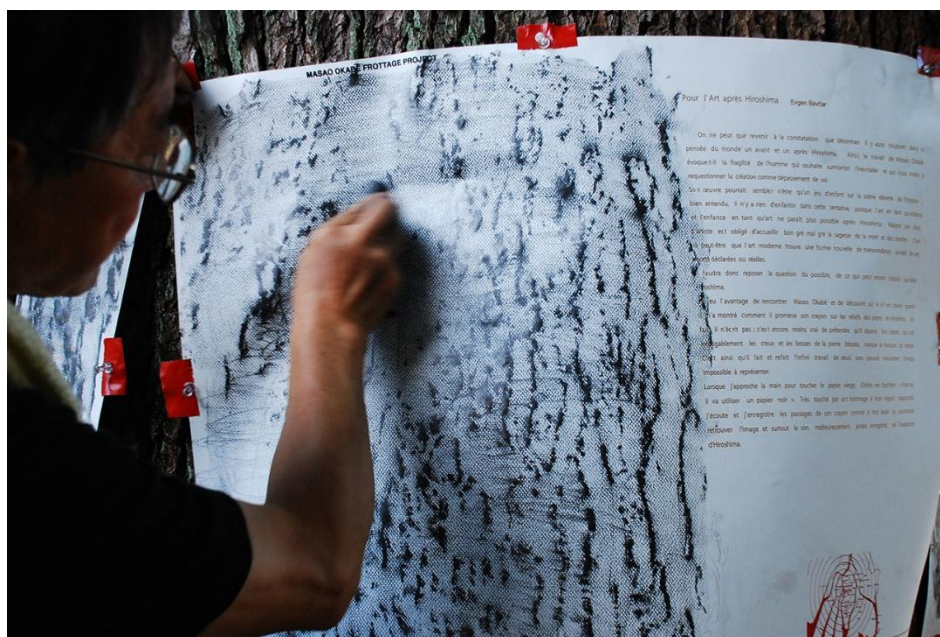 MASAO OKABE FROTTAGE PROJECT
Pour l'Art après Hiroshima Evgen Bavčar
On ne peut que revenir à la constatation que désormais il y aura toujours dans la
pensée du monde un avant et un après Hiroshima. Ainsi, le travail de Masao Okabé
évoque-t-il la fragilité de l'homme qui souhaite surmonter l'inévitable et qui nous invite à
requestionner la création comme dépassement de soi.
Son œuvre pourrait sembler n'être qu'un jeu d'enfant sur la scène déserte de l'histoire.
bien entendu, il n'y a rien d'enfantin dans cette tentative, puisque l'art en tant
et l'enfance en tant qu'art ne paraît plus possible après Hiroshima. Malgré son désir
l'artiste est obligé d'accueillir bon gré mal gré la sagesse de la mort et des cendres. C'est
peut-être que l'art moderne trouve une forme nouvelle de transcendance
déclarées ou réelles.
faudra donc reposer la question du possible, de ce qui peut encore
Hiroshima.
eu l'avantage de rencontrer Masao Okabé et de découvrir
a montré comment il promène son crayon sur les reliefs des pierres
il n'écrit pas ; c'est encore moins vrai de prétendre qu'il dessine. Son crayon, qui suit
les creux et les bosses de la pierre blessée,
ainsi qu'il fait et refait l'infini travail de deuil, sans pouvoir l'image
impossible à représenter.
Lorsque j'approche la main pour toucher le papier vierge, Chihiro me chuchote : « Pour toi
il va utiliser un papier noir ». Très touché par cet hommage à mon regard
j'écoute et j'enregistre les passages de son crayon comme si moi aussi je souhaitais
retrouver l'image et surtout le son, malheureusement jamais enregistré, de
d'Hiroshima.